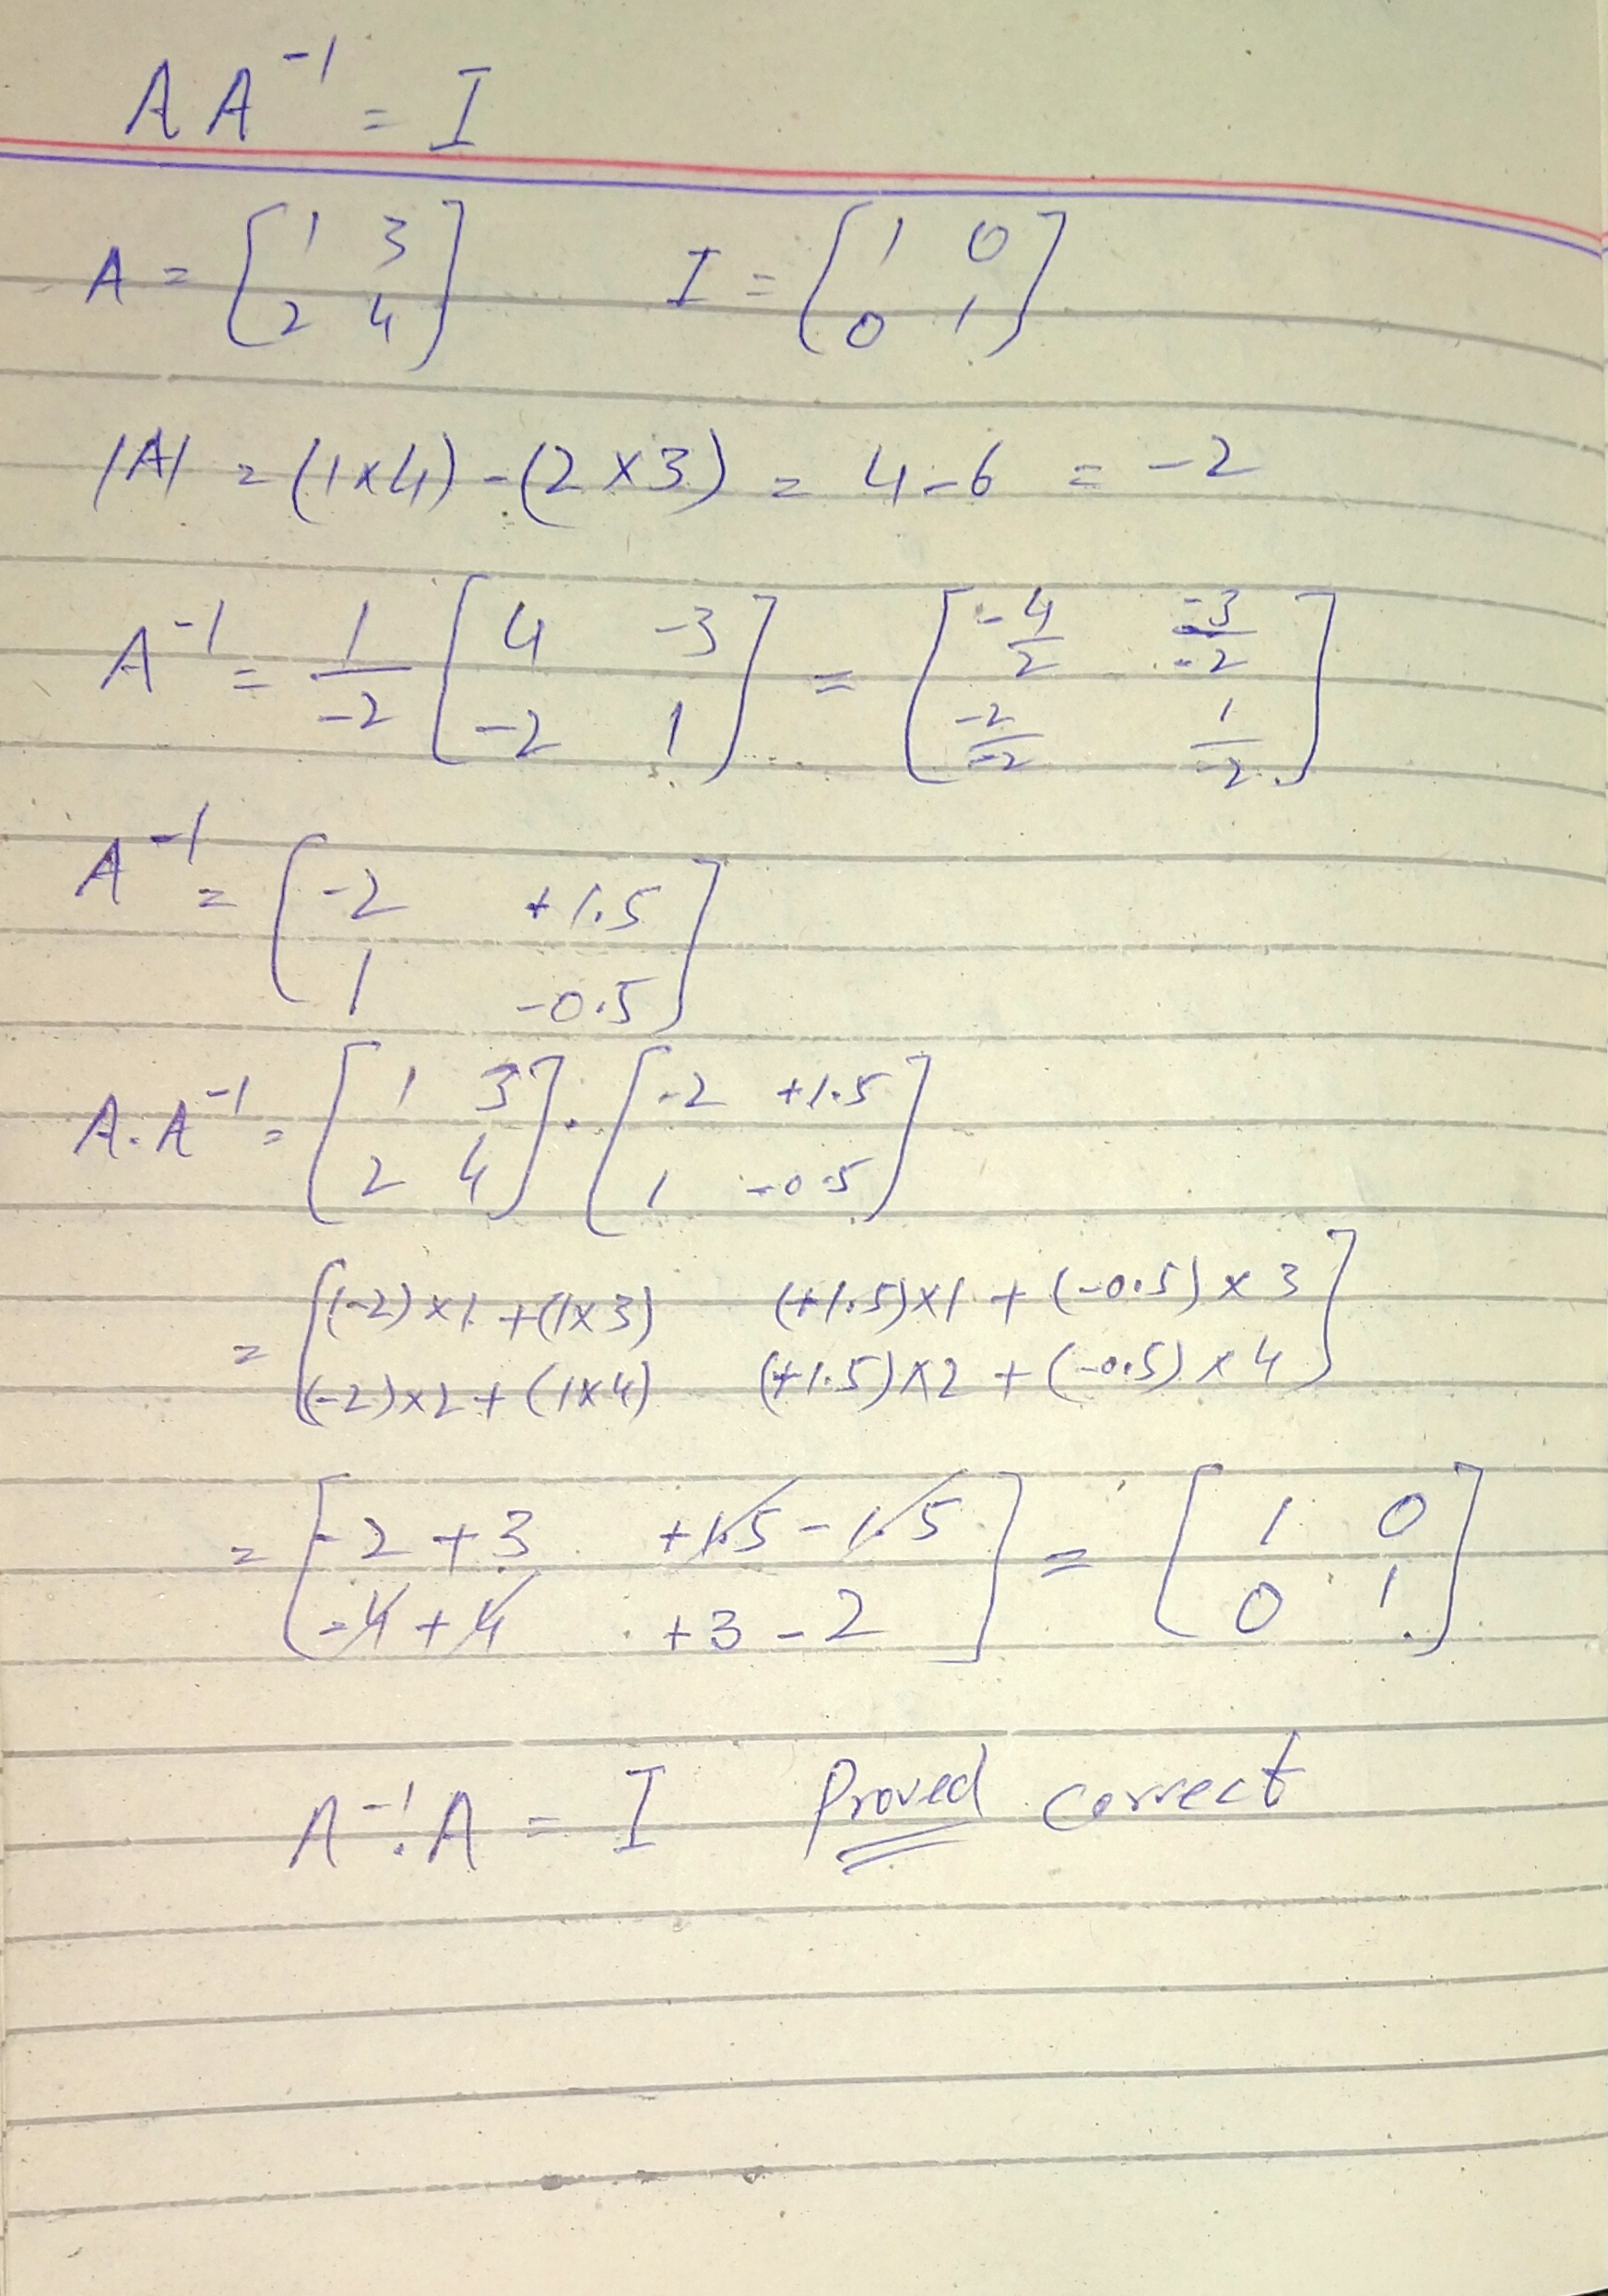 A A⁻¹ = I
A = [1 3; 2 4]   I = [1 0; 0 1]
|A| = (1×4) - (2×3) = 4-6 = -2
A⁻¹ = 1/-2 [4 -3; -2 1] = [-4/2 -3/-2; -2/-2 1/-2]
A⁻¹ = [-2 +1.5; 1 -0.5]
A.A⁻¹ = [1 3; 2 4] . [-2 +1.5; 1 -0.5]
= [(-2)×1 + (1×3) (+1.5)×1 + (-0.5)×3; (-2)×2 + (1×4) (+1.5)×2 + (-0.5)×4]
= [-2+3 +1.5-1.5; -4+4 +3-2] = [1 0; 0 1]
A⁻¹.A = I Proved correct